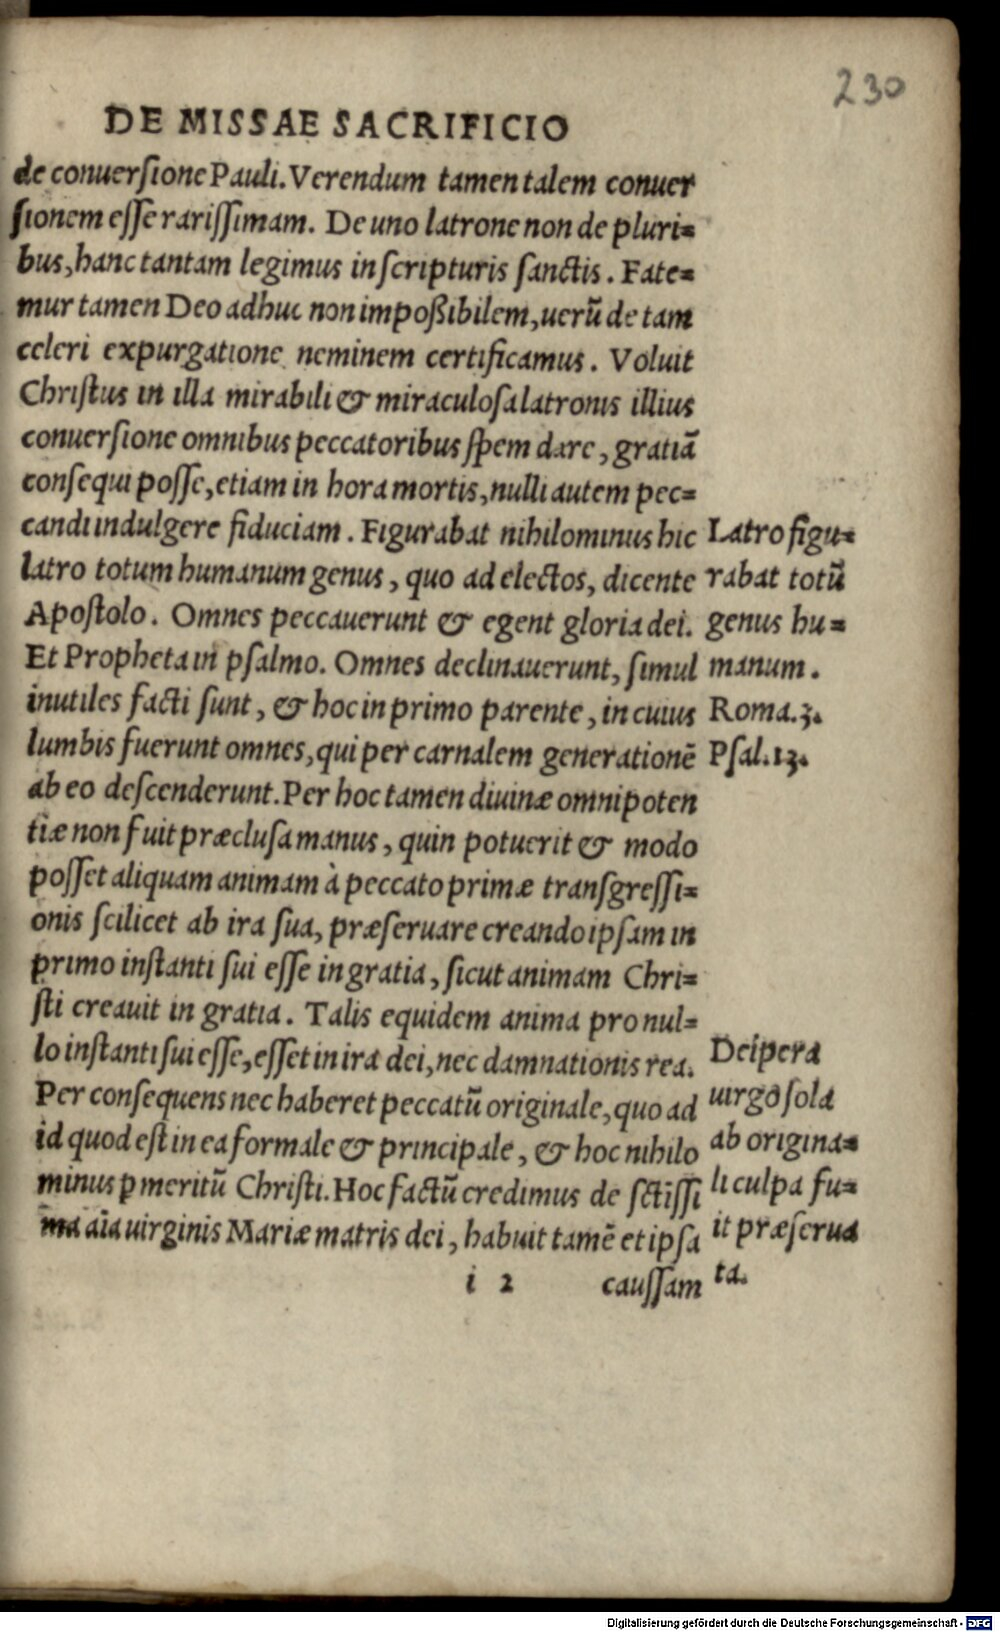 230
DE MISSAE SACRIFICIO
de conuersione Pauli. Verendum tamen talem conuer
sionem esse rarissimam. De uno latrone non de pluri=
bus, hanc tantam legimus in scripturis sanctis. Fate=
mur tamen Deo adhuc non impoßibilem, uerũ de tam
celeri expurgatione neminem certificamus. Voluit
Christus in illa mirabili & miraculosa latronis illius
conuersione omnibus peccatoribus spem dare, gratiã
consequi posse, etiam in hora mortis, nulli autem pec=
candi indulgere fiduciam. Figurabat nihilominus hic
latro totum humanum genus, quo ad electos, dicente
Apostolo. Omnes peccauerunt & egent gloria dei.
Et Propheta in psalmo. Omnes declinauerunt, simul
inutiles facti sunt, & hoc in primo parente, in cuius
lumbis fuerunt omnes, qui per carnalem generationẽ
ab eo descenderunt. Per hoc tamen diuinæ omnipoten
tiæ non fuit præclusa manus, quin potuerit & modo
posset aliquam animam à peccato primæ transgressi=
onis scilicet ab ira sua, præseruare creando ipsam in
primo instanti sui esse in gratia, sicut animam Chri=
sti creauit in gratia. Talis equidem anima pro nul=
lo instanti sui esse, esset in ira dei, nec damnationis rea.
Per consequens nec haberet peccatũ originale, quo ad
id quod est in ea formale & principale, & hoc nihilo
minus ꝑ meritũ Christi. Hoc factũ credimus de sctĩssi
ma aĩa uirginis Mariæ matris dei, habuit tamẽ et ipsa
i 2 caussam
Latro figu=
rabat totũ
genus hu=
manum.
Roma.3.
Psal.13.
Deipera
uirgo sola
ab origina=
li culpa fu=
it præserua
ta.
Digitalisierung gefördert durch die Deutsche Forschungsgemeinschaft - DFG